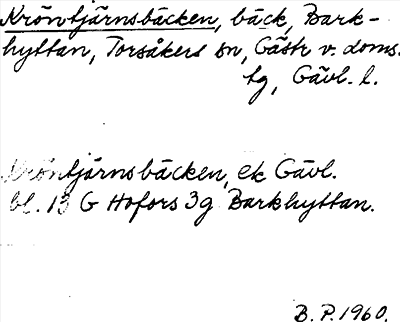 Kröntjärnsbäcken, bäck, Bark-
hyttan, Torsåkers sn, Gästr v. doms.
tg, Gävl. l.
Kröntjärnsbäcken, ek Gävl.
bl. 13 G Hofors 3g Barkhyttan.
B. P. 1960.